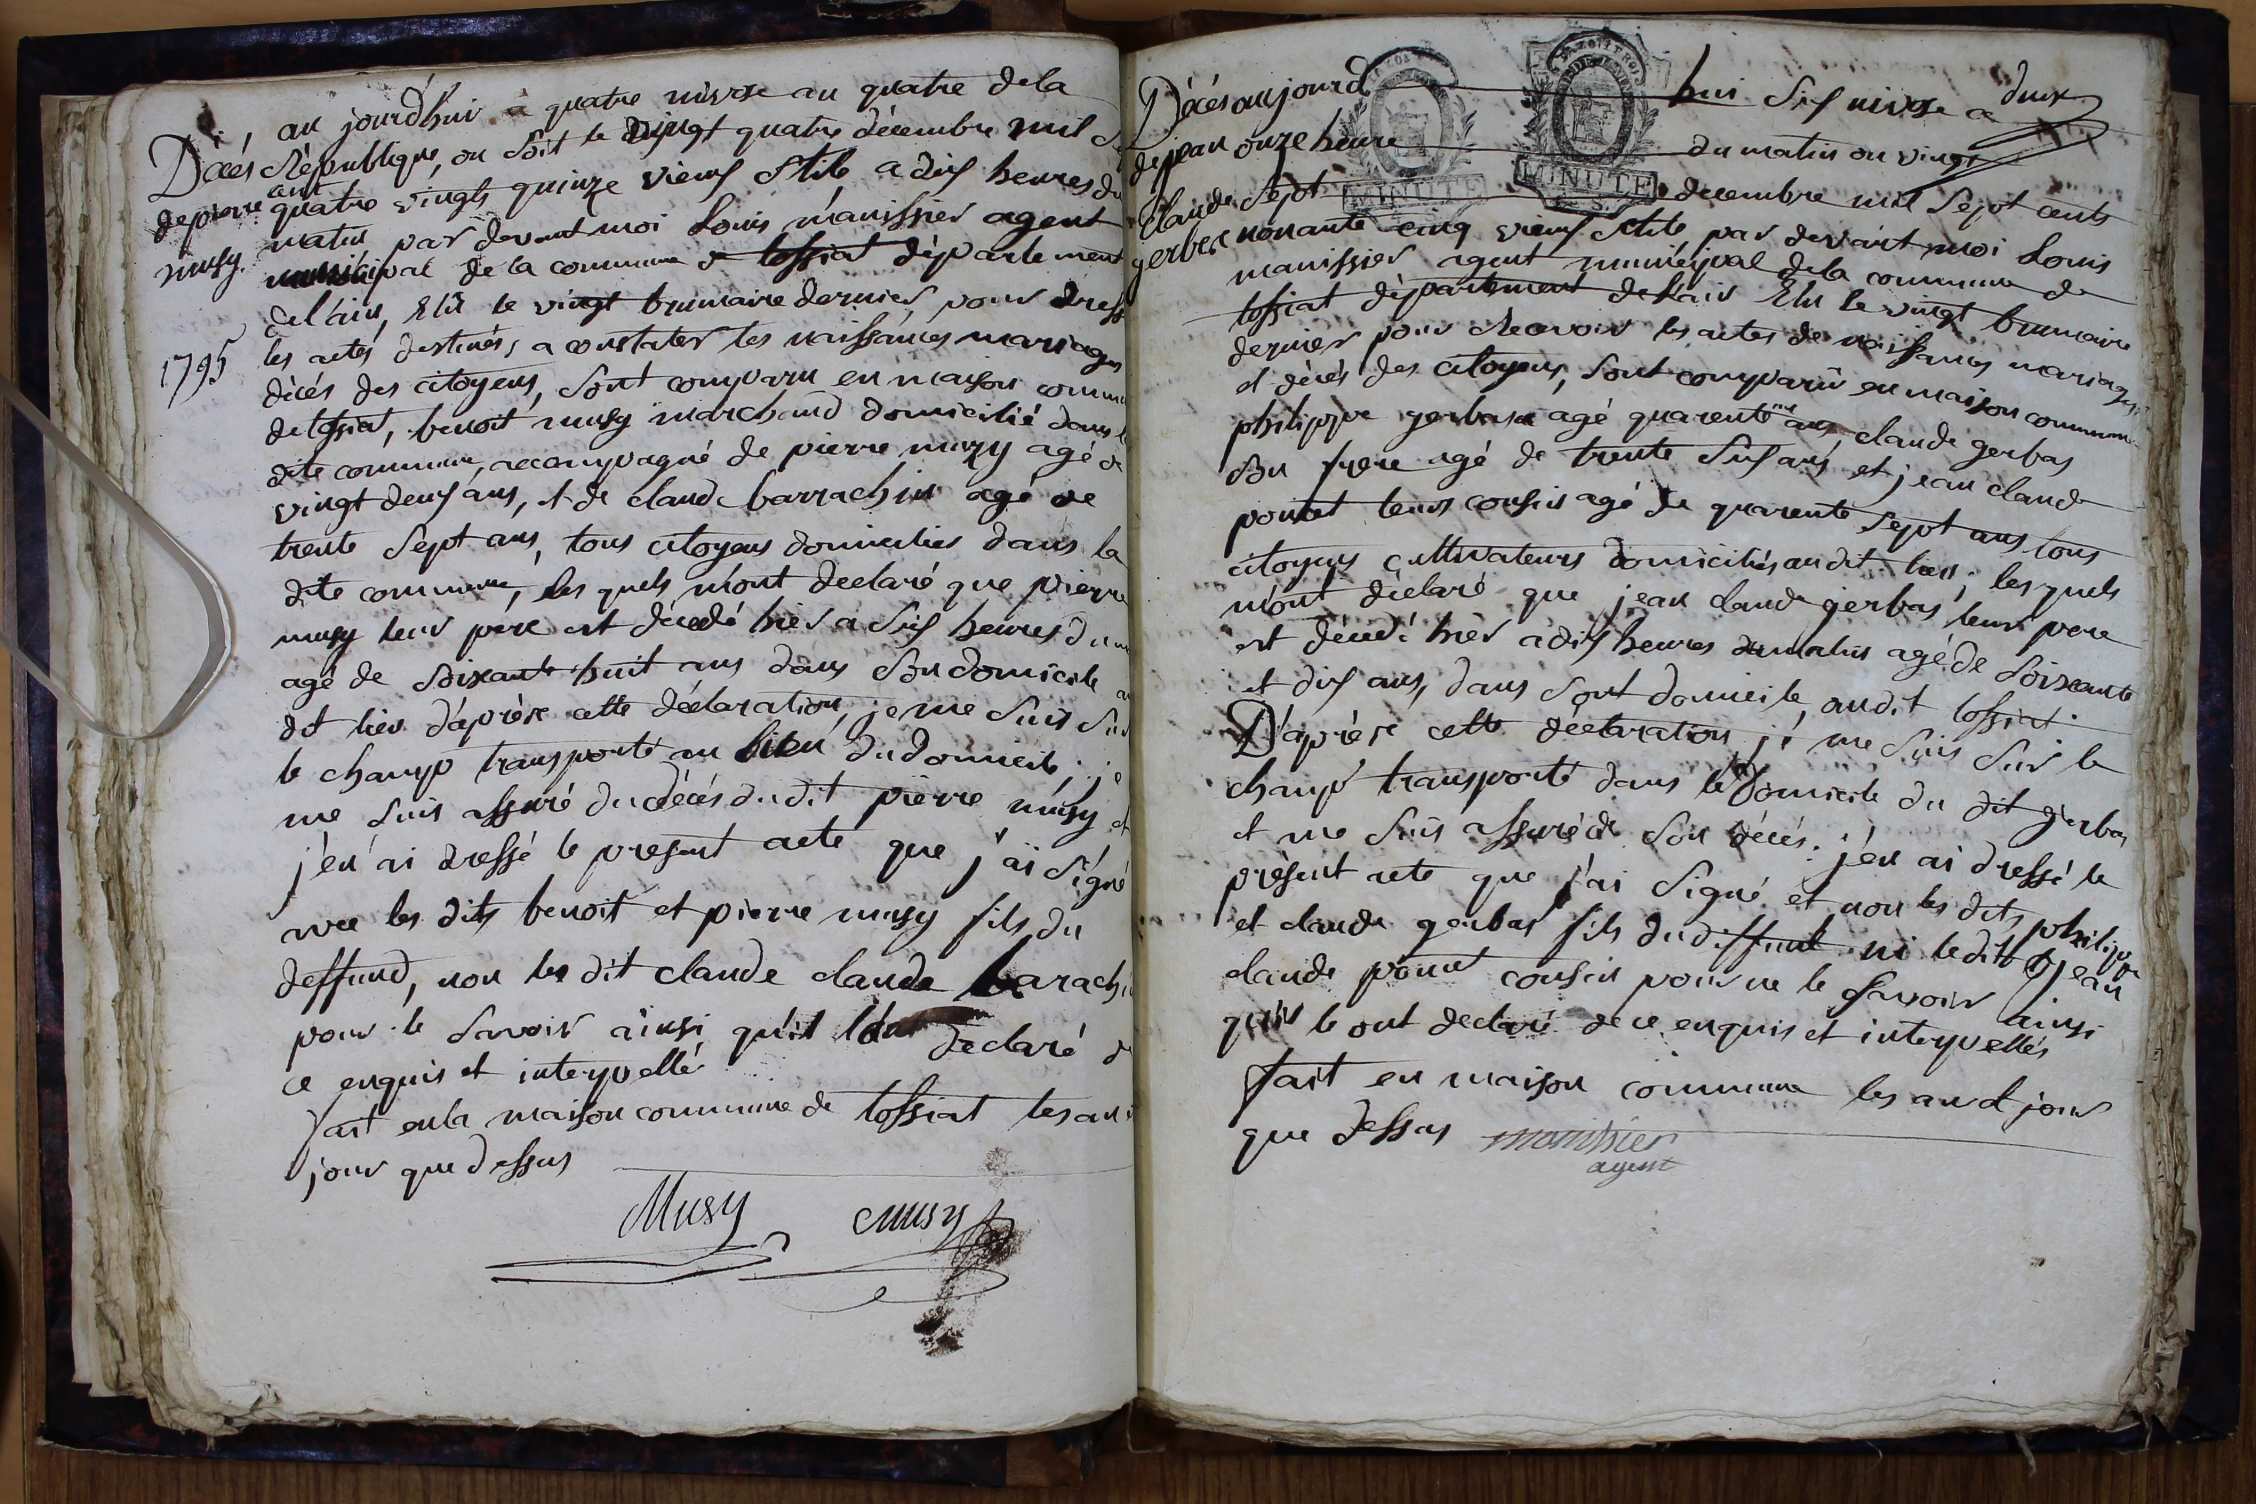 Décés
de pierre
musy
1795
au jourd'hui a quatre nivose an quatre de la
République, ou soit le vingt quatre décembre mil
cent
quatre vingts quinze vieux stile a dix heures du
matin par devant moi Louis manissier agent
municipal de la commune de tossiat département
de l'ain, Elû le vingt brumaire dernier, pour dress
les actes destinés, a constater les naissances mariages
décés des citoyens, sont comparu en maison commu
de tossiat, benoit musy marchand domicilié dans l
dite commune, accompagné de pierre muzy agé de
vingt deux ans, et de claude barrachin agé de
trente sept ans, tous citoyens domiciliés dans la
dite commune, les quels m'ont declaré que pierre
musy leur pere est décedé hier a six heures du
agé de soixante huit ans dans son domicile au
dit lieu d'aprèse cette déclaration, je me suis sur
le champ transporté au lieu du domicile, je
me suis assuré du décés du dit pierre musy et
j'en ai dressé le present acte que j'ai signé
avec les dits benoit et pierre musy fils du
deffund, non les dit claude claude barachi
pour le savoir ainsi qu'il l'ont declaré de
ce enquis et interpellé
fait en la maison commune de tossiat les an
jour que dessus
Musy musy
Décés
de jean
claude
gerbas
aujourdhui six nivose a
onze heure du matin ou vingt
MINUTE
MINUTE
sept decembre mil sept cents
nonante cinq vieux stile par devant moi Louis
manissier agent municipal de la commune de
tossiat département de l'ain Elu le vingt brumaire
dernier pour recevoir les actes de naissances mariages
et décés des citoyens, sont comparû en maison commune
philippe gerbas agé quarente ans, claude gerbas
son frere agé de trente six ans et jean claude
poncet leur cousin agé de quarente sept ans tous
citoyens cultivateurs domiciliés au dit lieu, les quels
m'ont déclaré que jean claude gerbas leur pere
est décedé hier a dix heures du matin agé de soixante
et dix ans, dans sont domicile, au dit tossiat.
D'aprèse cette declaration je me suis sur le
champ transporté dans le domicile du dit gerbas
et me suis assuré de son décés. j'en ai dressé le
présent acte que j'ai signé et non les dits philippe
et claude gerbas fils du diffunt ni le dit jean
claude poncet cousin pour ne le savoir ainsi
qu'ils le ont declaré de ce enquis et interpellés
fait en maison commune les an et jour
que dessus manissier
agent